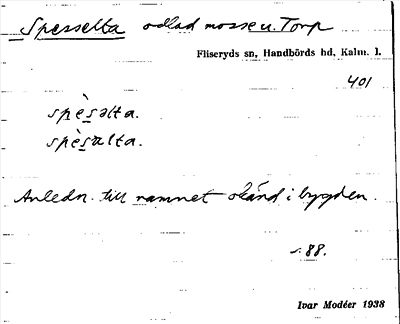 Spesselta odlad mosse u. Torp
Fliseryds sn, Handbörds hd, Kalm. l.
401
spèsəlta.
spèsalta.
Anledn. till namnet okänd i bygden.
s. 88.
Ivar Modéer 1938